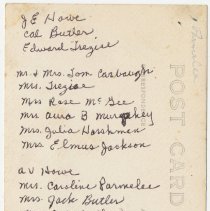 J E Howe
Cal Butler
Edward Trezise
Mr & Mrs. Tom Carbaugh
Mrs. Trezise
Mrs Rose Mc Gee
Mrs Anna B Murphey
Mrs. Julia Workmen
Mrs Elmus Jackson
A V Howe
Mrs. Caroline Parmelee
Mrs. Jack Butler
POST CARD